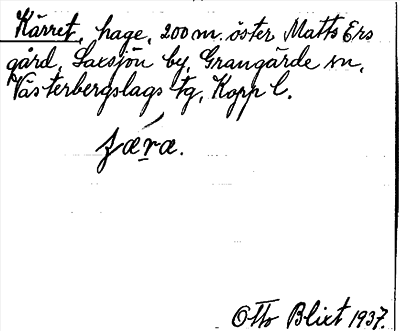 Kärret, hage, 200 m. öster Matts Ers
gård, Laxsjön by, Grangärde sn,
Västerbergslags tg, Kopp l.
færæ.
Otto Blixt 1937.